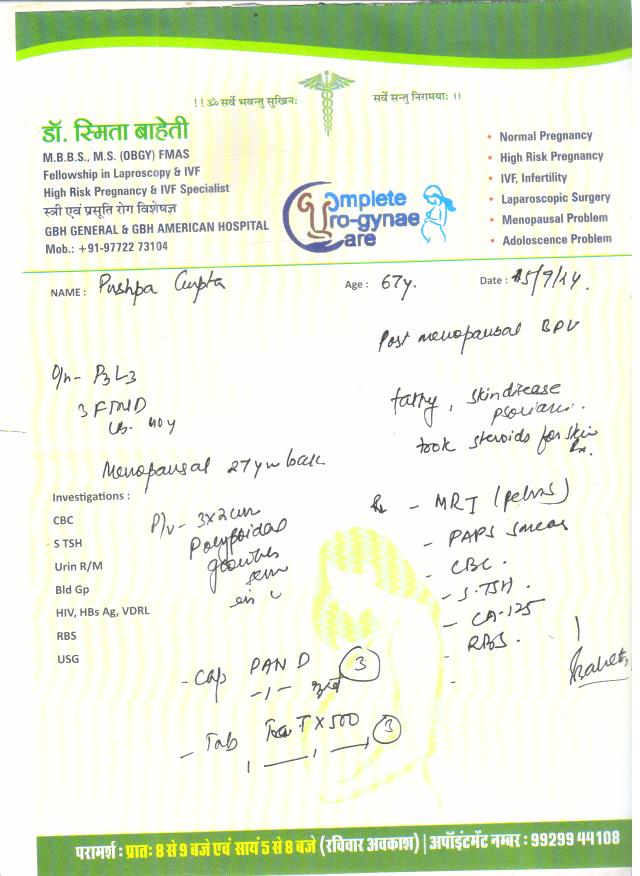 !! ॐ सर्वे भवन्तु सुखिनः
सर्वे सन्तु निरामयाः ।।
डॉ. स्मिता बाहेती
M.B.B.S., M.S. (OBGY) FMAS
Fellowship in Laproscopy & IVF
High Risk Pregnancy & IVF Specialist
स्त्री एवं प्रसूति रोग विशेषज्ञ
GBH GENERAL & GBH AMERICAN HOSPITAL
Mob.: +91-97722 73104
Complete
Uro-gynae
Care
• Normal Pregnancy
• High Risk Pregnancy
• IVF, Infertility
• Laparoscopic Surgery
• Menopausal Problem
• Adoloscence Problem
NAME : Pushpa Gupta Age : 67y. Date : 15/9/14.
Post menopausal BPV
O/h- P3L3
3 FTND
40y
fatty, skin disease
psoriasis.
took steroids for skin
Rx.
Menopausal 27 yr back
Investigations :
CBC
S TSH
Urin R/M
Bld Gp
HIV, HBs Ag, VDRL
RBS
USG
P/v- 3x2cm
Polypoidal
growth
seen
- MRI (pelvis)
- PAPS smear
- CBC.
- S.TSH.
- CA-125
- RBS.
- Cap PAN D 3
- Tab T X 500 3
परामर्श : प्रातः 8 से 9 बजे एवं सायं 5 से 8 बजे (रविवार अवकाश) | अपॉइंटमेंट नम्बर : 99299 44108